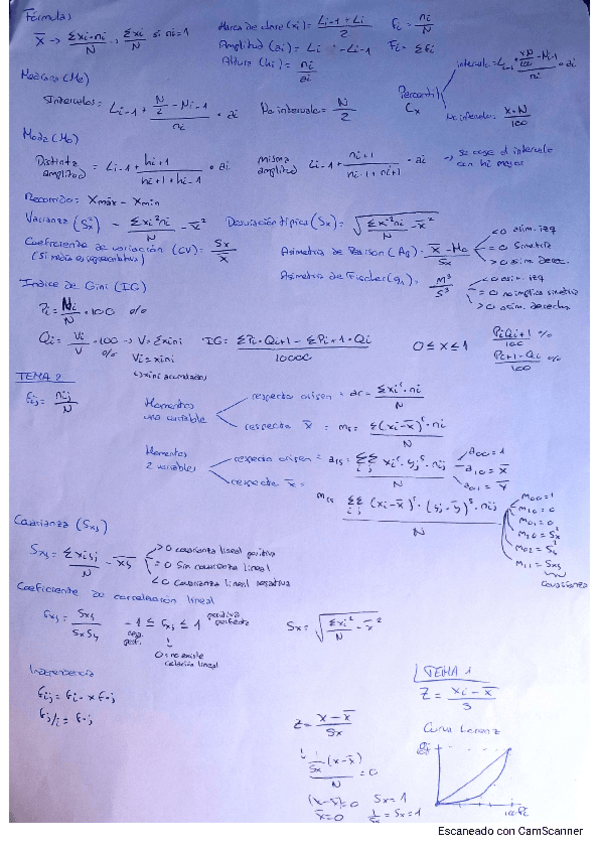 Fórmulas
x̄ → Σxi·ni/N → Σxi/N si ni=1
Marca de clase (xi) = (Li-1 + Li)/2
fi = ni/N
Amplitud (ai) = Li - Li-1
Fi = Σfi
Altura (hi) = ni/ai
Mediana (Me)
Intervalos = Li-1 + (N/2 - Ni-1)/ni · ai
No intervalo = N/2
Percentil Cx
intervalo = Li-1 + (xN/100 - Ni-1)/ni · ai
No intervalo = x·N/100
Moda (Mo)
Distinta amplitud = Li-1 + hi+1/(hi+1 + hi-1) · ai
misma amplitud Li-1 + ni+1/(ni-1 + ni+1) · ai → se coge el intervalo con hi mayor
Recorrido: Xmáx - Xmin
Varianza (S²x) = Σxi²ni/N - x̄²
Desviación típica (Sx) = √(Σxi²ni/N - x̄²)
Coeficiente de variación (CV) = Sx/x̄
(Si media es representativa)
Asimetría de Pearson (As) = (x̄ - Mo)/Sx
<0 asim. izq
=0 Simetría
>0 asim. derec.
Asimetría de Fischer (g1) = m³/S³
<0 asim. izq
=0 no implica simetría
>0 asim. derecha
Indice de Gini (IG)
Pi = Ni/N · 100 %
Qi = Vi/V · 100 → V = Σxini
%
Vi = xini
↳ xini acumulados
IG = (ΣPi·Qi+1 - ΣPi+1·Qi)/10000
0 ≤ x ≤ 1
PiQi+1/100 %
Pi+1·Qi/100 %
TEMA 2
fij = nij/N
Momentos una variable
respecto origen = ar = Σxiʳ·ni/N
respecto x̄ = mr = Σ(xi-x̄)ʳ·ni/N
Momentos 2 variables
respecto origen = ars = ΣΣ xiʳ·yjˢ·nij/N
a00 = 1
a10 = x̄
a01 = ȳ
respecto x̄ =
mrs ΣΣ (xi-x̄)ʳ·(yj-ȳ)ˢ·nij/N
m00 = 1
m10 = 0
m01 = 0
m20 = S²x
m02 = S²y
m11 = Sxy
Covarianza (Sxy)
Sxy = Σxiyj/N - x̄ȳ
>0 covarianza lineal positiva
=0 Sin covarianza lineal
<0 covarianza lineal negativa
Coeficiente de correlación lineal
rxy = Sxy/SxSy
-1 ≤ rxy ≤ 1
positiva perfecta
neg. perf.
0 = no existe relación lineal
Sx = √(Σxi²/N - x̄²)
Independencia
fij = fi· x f·j
fj/i = f·j
TEMA 1
Z = (xi - x̄)/S
Z = (x - x̄)/Sx
1/Sx (x-x̄)/N = 0
(x-x̄)=0 Sx=1
x̄=0 1/Sx = Sx = 1
Curva Lorenz
Escaneado con CamScanner